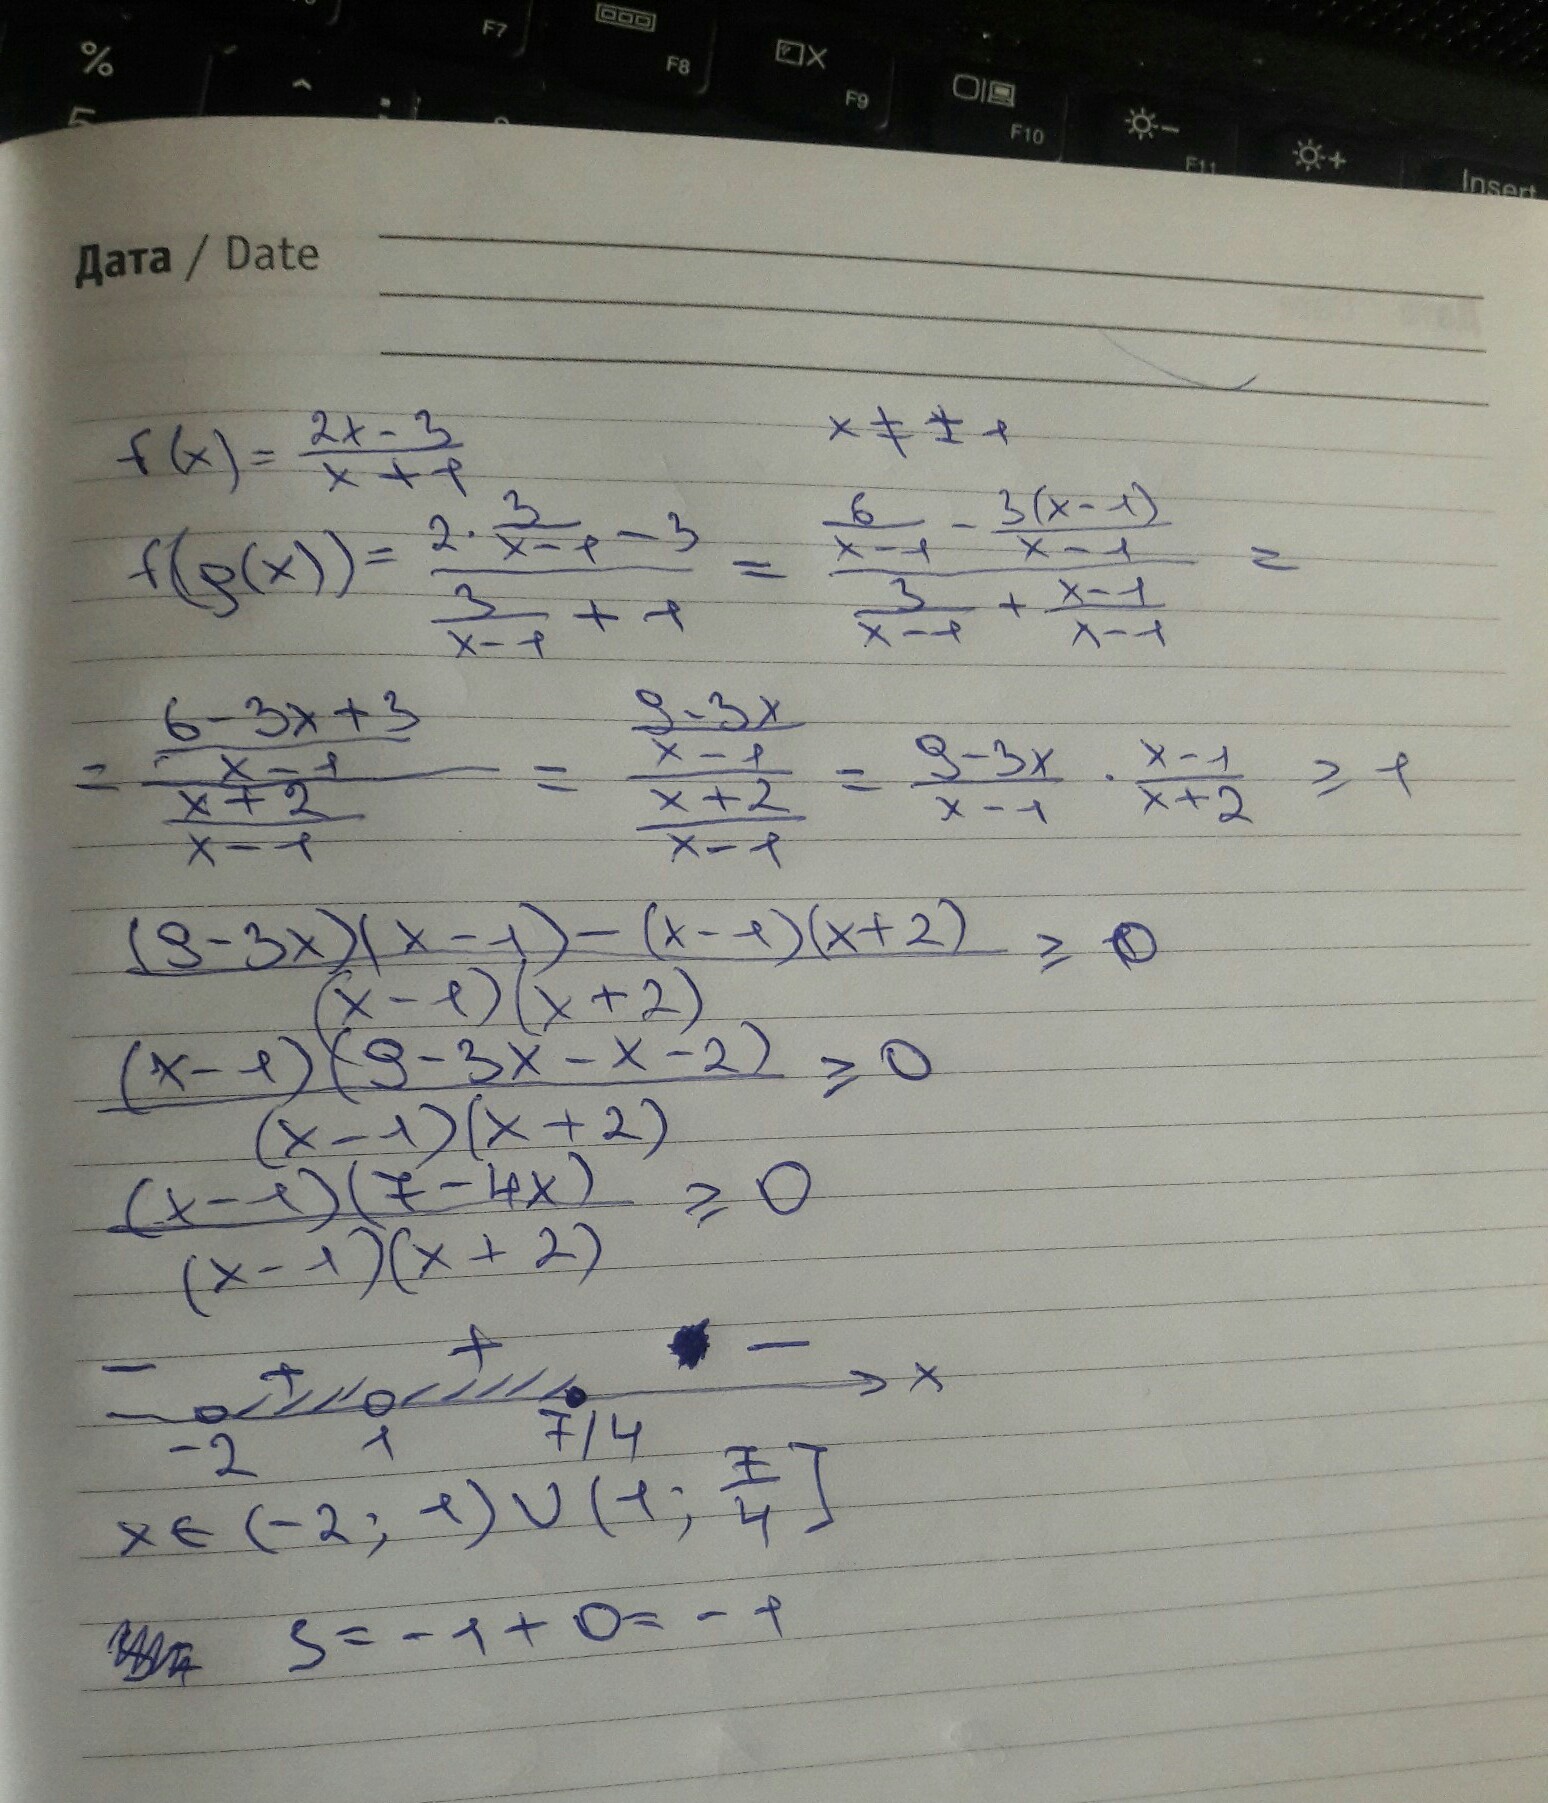 % F7 F8 F9 F10 F11 Insert
5
Дата / Date
f(x) = (2x-3)/(x+1)    x ≠ ±1
f(g(x)) = (2·3/(x-1) - 3)/(3/(x-1) + 1) = (6/(x-1) - 3(x-1)/(x-1))/(3/(x-1) + (x-1)/(x-1)) =
= ((6-3x+3)/(x-1))/((x+2)/(x-1)) = ((9-3x)/(x-1))/((x+2)/(x-1)) = (9-3x)/(x-1) · (x-1)/(x+2) ⩾ 1
((9-3x)(x-1)-(x-1)(x+2))/((x-1)(x+2)) ⩾ 0
((x-1)(9-3x-x-2))/((x-1)(x+2)) ⩾ 0
((x-1)(7-4x))/((x-1)(x+2)) ⩾ 0
- + + -
-2 1 7/4 x
x ∈ (-2; 1) ∪ (1; 7/4]
S = -1 + 0 = -1